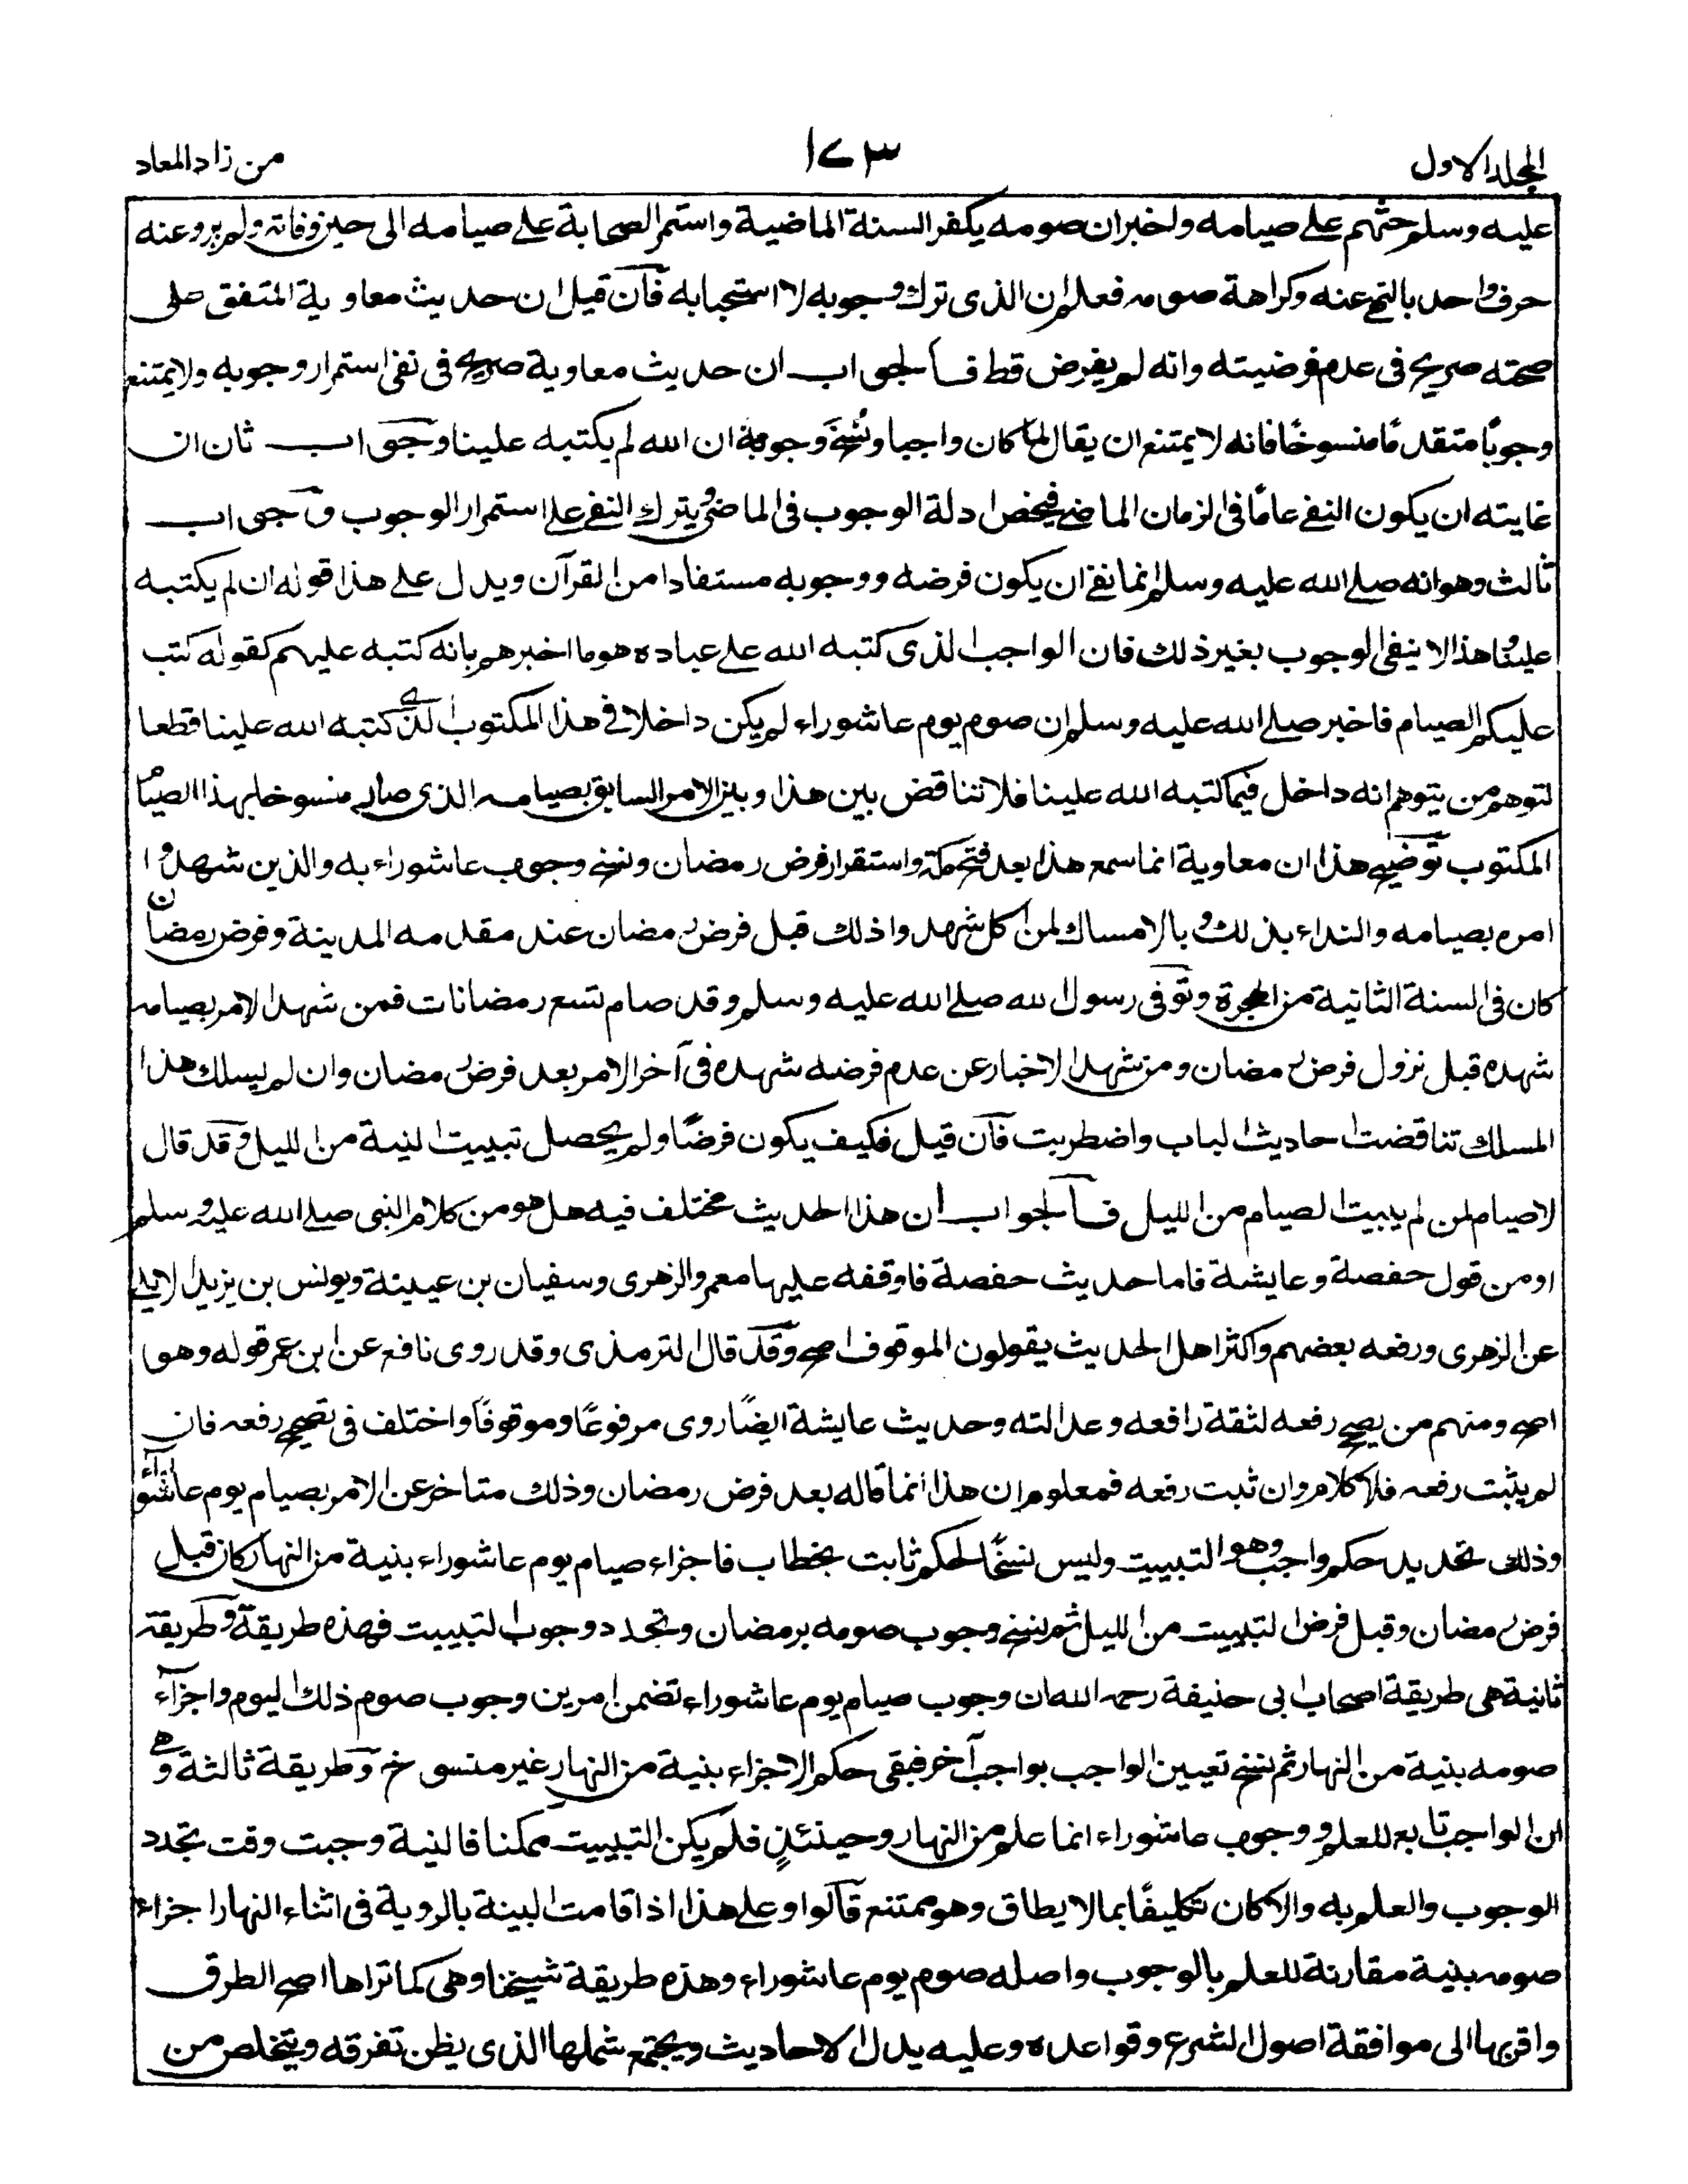 المجلد الاول
١٧٣
من زاد المعاد
عليه وسلم حثهم على صيامه واخبر ان صومه يكفر السنة الماضية واستمر الصحابة على صيامه الى حين وفاته ولم يرو عنه
حرف واحد بالنهي عنه وكراهة صومه فعلم ان الذى ترك وجوبه لا استحبابه فان قيل ان حديث معاوية المتفق على
صحته صريح فى عدم فرضيته وانه لم يفرض قط فالجواب ان حديث معاوية صريح فى نفى استمرار وجوبه ولا يمتنع
وجوبًا متقدمًا منسوخًا فانه لا يمتنع ان يقال لما كان واجبا ونُسخَ وجوبه ان الله لم يكتبه علينا وجواب ثان ان
غايته ان يكون النفى عامًا فى الزمان الماضى فيخص ادلة الوجوب فى الماضى ويترك النفى على استمرار الوجوب وجواب
ثالث وهو انه صلى الله عليه وسلم انما نفى ان يكون فرضه ووجوبه مستفادا من القرآن ويدل على هذا قوله ان لم يكتبه
علينا وهذا لا ينفى الوجوب بغير ذلك فان الواجب الذى كتبه الله على عباده هو ما اخبرهم بانه كتبه عليهم كقوله كتب
عليكم الصيام فاخبر صلى الله عليه وسلم ان صوم يوم عاشوراء لم يكن داخلا فى هذا المكتوب الذى كتبه الله علينا قطعا
لتوهم من يتوهم انه داخل فيما كتبه الله علينا فلا تناقض بين هذا وبين الامر السابق بصيامه الذى صار منسوخا بهذا الصيام
المكتوب توضيح هذا ان معاوية انما سمع هذا بعد فتح مكة واستقرار فرض رمضان ونسخ وجوب عاشوراء به والذين شهدوا
امره بصيامه والنداء بذلك وبالامساك لمن اكل شهدوا ذلك قبل فرض رمضان عند مقدمه المدينة وفرض رمضان
كان فى السنة الثانية من الهجرة وتوفى رسول الله صلى الله عليه وسلم وقد صام تسع رمضانات فمن شهد الامر بصيامه
شهده قبل نزول فرض رمضان ومن شهد الاخبار عن عدم فرضه شهده فى آخر الامر بعد فرض رمضان وان لم يسلك هذا
المسلك تناقضت احاديث الباب واضطربت فان قيل فكيف يكون فرضًا ولم يحصل تبييت النية من الليل وقد قال
لاصيام لمن لم يبيت الصيام من الليل فالجواب ان هذا الحديث مختلف فيه هل هو من كلام النبى صلى الله عليه وسلم
او من قول حفصة وعايشة فاما حديث حفصة فاوقفه عليها معمر والزهرى وسفيان بن عيينة ويونس بن يزيد الايلى
عن الزهرى ورفعه بعضهم واكثر اهل الحديث يقولون الموقوف اصح وقد قال الترمذى وقد روى نافع عن ابن عمر قوله وهو
اصح ومنهم من يصح رفعه لثقة رافعه وعدالته وحديث عايشة ايضًا روى مرفوعًا وموقوفًا واختلف فى تصحيح رفعه فان
لم يثبت رفعه فلا كلام وان ثبت رفعه فمعلوم ان هذا انما قاله بعد فرض رمضان وذلك متاخر عن الامر بصيام يوم عاشوراء
وذلك تجديد حكم واجب وهو التبييت وليس نسخًا لحكم ثابت بخطاب فاجزاء صيام يوم عاشوراء بنية من النهار كان قبل
فرض رمضان وقبل فرض التبييت من الليل ثم نسخ وجوب صومه برمضان وتجدد وجوب التبييت فهذه طريقة وطريقة
ثانية هى طريقة اصحاب ابى حنيفة رحمه الله ان وجوب صيام يوم عاشوراء تضمن امرين وجوب صوم ذلك اليوم واجزآء
صومه بنية من النهار ثم نسخ تعيين الواجب بواجب آخر فبقى حكم الاجزاء بنية من النهار غير منسوخ وطريقة ثالثة وهى
ان الواجب تابع للعلم ووجوب عاشوراء انما علم من النهار وحينئذٍ فلم يكن التبييت ممكنا فالنية وجبت وقت تجدد
الوجوب والعلم به والا كان تكليفًا بما لا يطاق وهو ممتنع قالوا وعلى هذا اذا قامت البينة بالروية فى اثناء النهار اجزاء
صومه بنية مقارنة للعلم بالوجوب واصله صوم يوم عاشوراء وهذه طريقة شيخنا وهى كما تراها اصح الطرق
واقربها الى موافقة اصول الشرع وقواعده وعليه يدل الاحاديث ويجتمع شملها الذى يظن تفرقه ويتخلص من